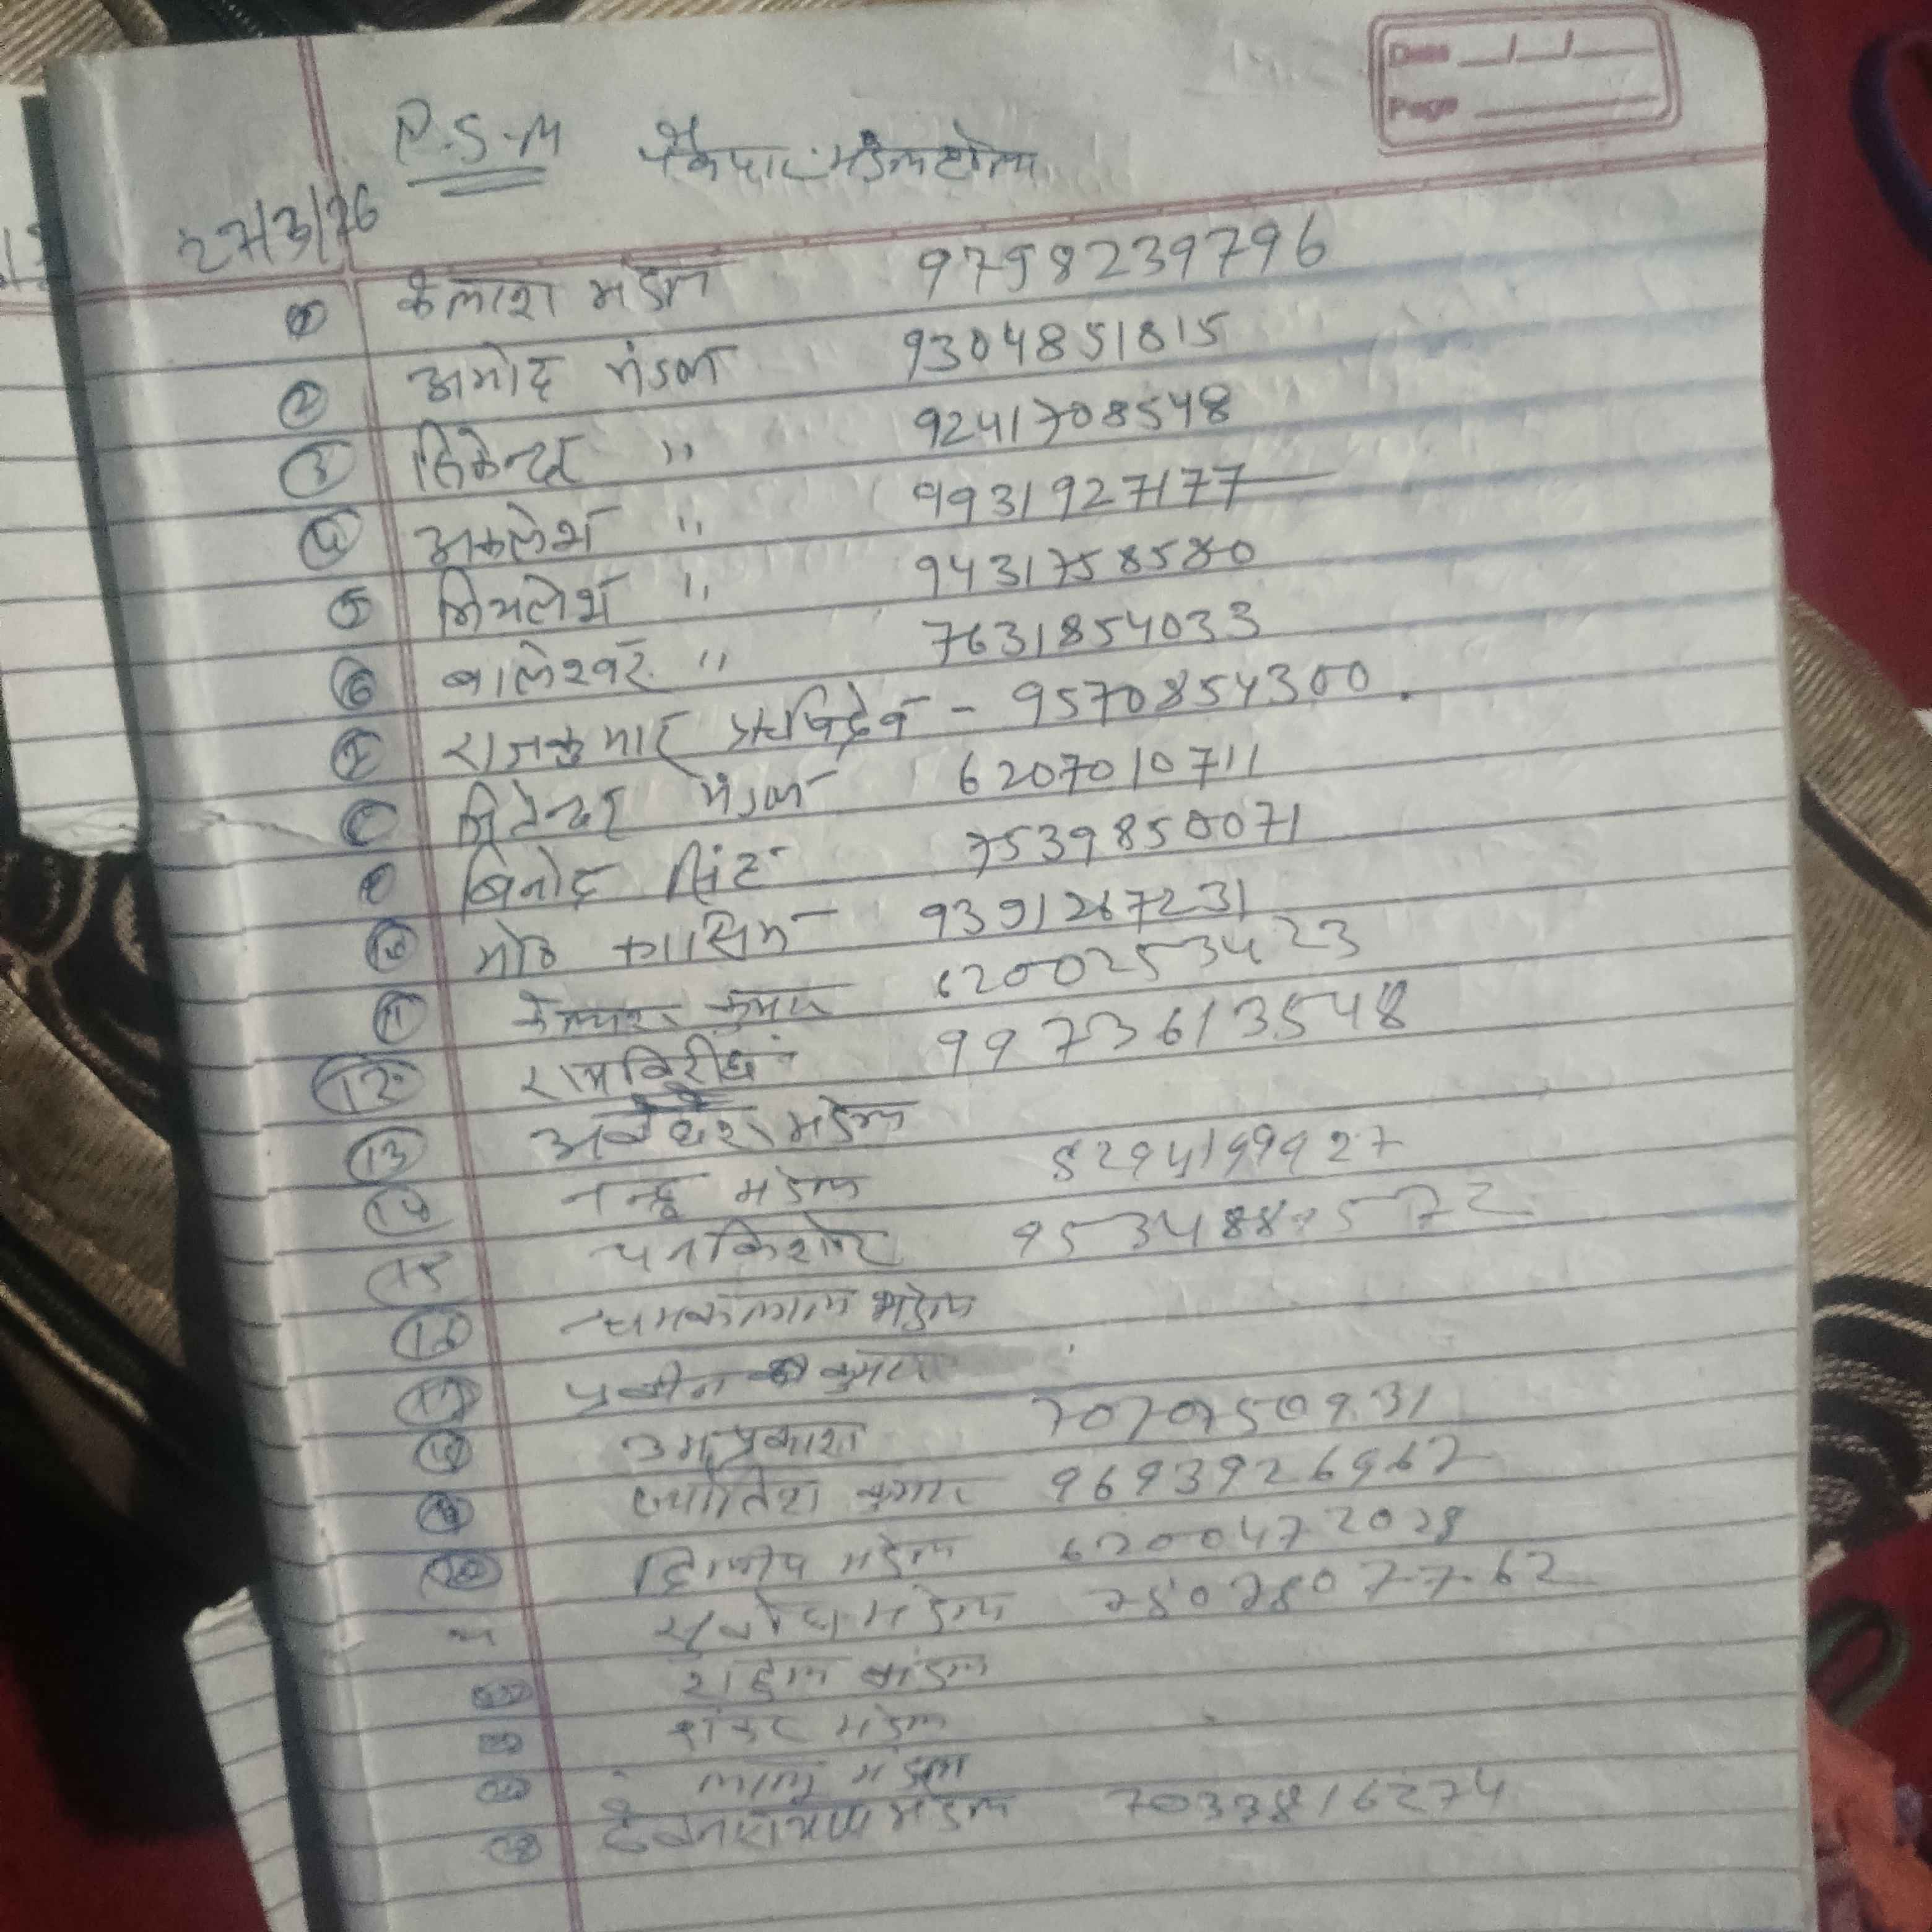 Date __/__/__
Page
P.S.M पैकपार मंडल टोला
27/3/26
① कैलाश मंडल 9798239796
② अमोद मंडल 9304851815
③ सिकेन्द्र " 9241708548
④ अकलेश " 9931927177
⑤ मिथलेश " 9431758580
⑥ बालेश्वर " 7631854033
राजकुमार ऋषिदेव - 9570854300
जितेन्द्र मंडल 6207010711
बिनोद सिंह 7539850071
⑩ मो० कासिम 9391267231
⑪ कुमार 6200253423
⑫ रामविरीछ 9973613548
⑬ अवधेश मंडल
⑭ नन्दू मंडल 8294199927
⑮
⑯ चमकलाल मंडल
⑰ प्रवीन कुमार
⑱ उमप्रकाश 7070750931
⑲ ज्योतिश कुमार 9693926962
⑳ दिलीप मंडल 6200472028
सुबोध मंडल
राहुल मंडल
शंकर मंडल
लालू मंडल
देवनारायण मंडल 7033816274